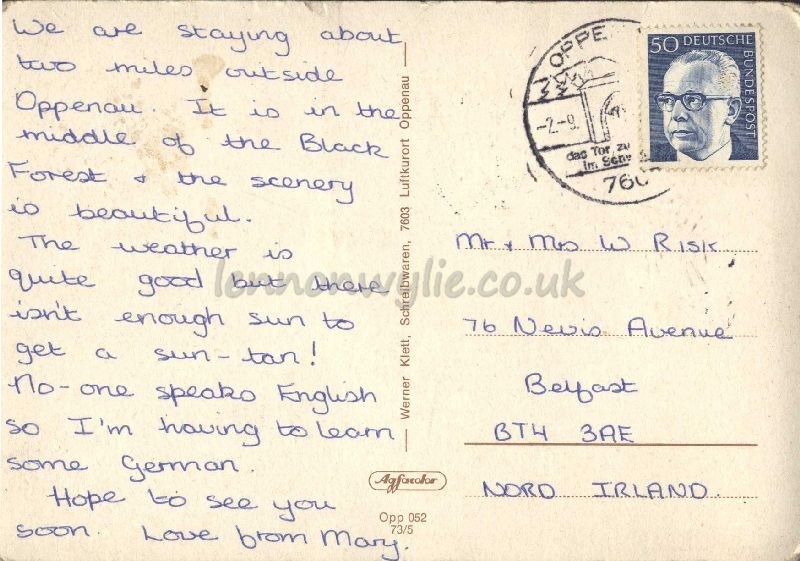 We are staying about
two miles outside
Oppenau. It is in the
middle of the Black
Forest & the scenery
is beautiful.
The weather is
quite good but there
isn't enough sun to
get a sun-tan!
No-one speaks English
so I'm having to learn
some German.
Hope to see you
soon. Love from Mary.
Werner Klett, Schreibwaren, 7603 Luftkurort Oppenau
Agfacolor
Opp 052
73/5
OPPE
-2.-9.
das Tor zu
im Schw
760
50 DEUTSCHE
BUNDESPOST
Mr & Mrs W Risk
76 Nevis Avenue
Belfast
BT4 3AE
NORD IRLAND.
lennonwylie.co.uk